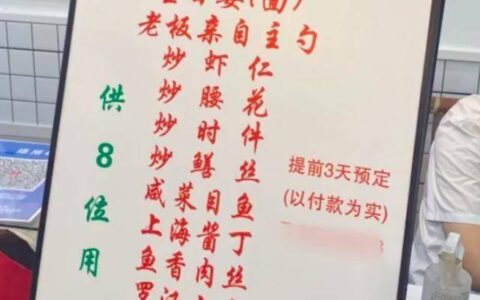 老板亲自主勺
炒虾仁
炒腰花
炒时件
炒鳝丝
咸菜目鱼
上海酱丁
鱼香肉丝
罗
供8位用
提前3天预定
(以付款为实)